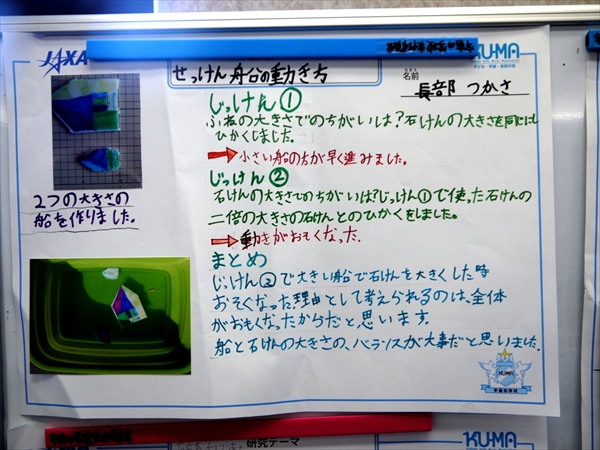 JAXA
KU-MA
せっけん船の動き方
名前
長部 つかさ
じっけん①
ふねの大きさでのちがいは?石けんの大きさを同じにし
ひかくしました。
→小さい船のちが早く進みました。
じっけん②
石けんの大きさでのちがいは?じっけん①で使った石けんの
二倍の大きさの石けんとのひかくをしました。
→動きがおそくなった。
まとめ
じっけん②で大きい船で石けんを大きくした時
おそくなった理由として考えられるのは、全体
がおもくなったからだと思います。
船と石けんの大きさの、バランスが大事だと思いました。
2つの大きさの
船を作りました。
KU-MA
宇宙の学校
研究テーマ
KU-MA